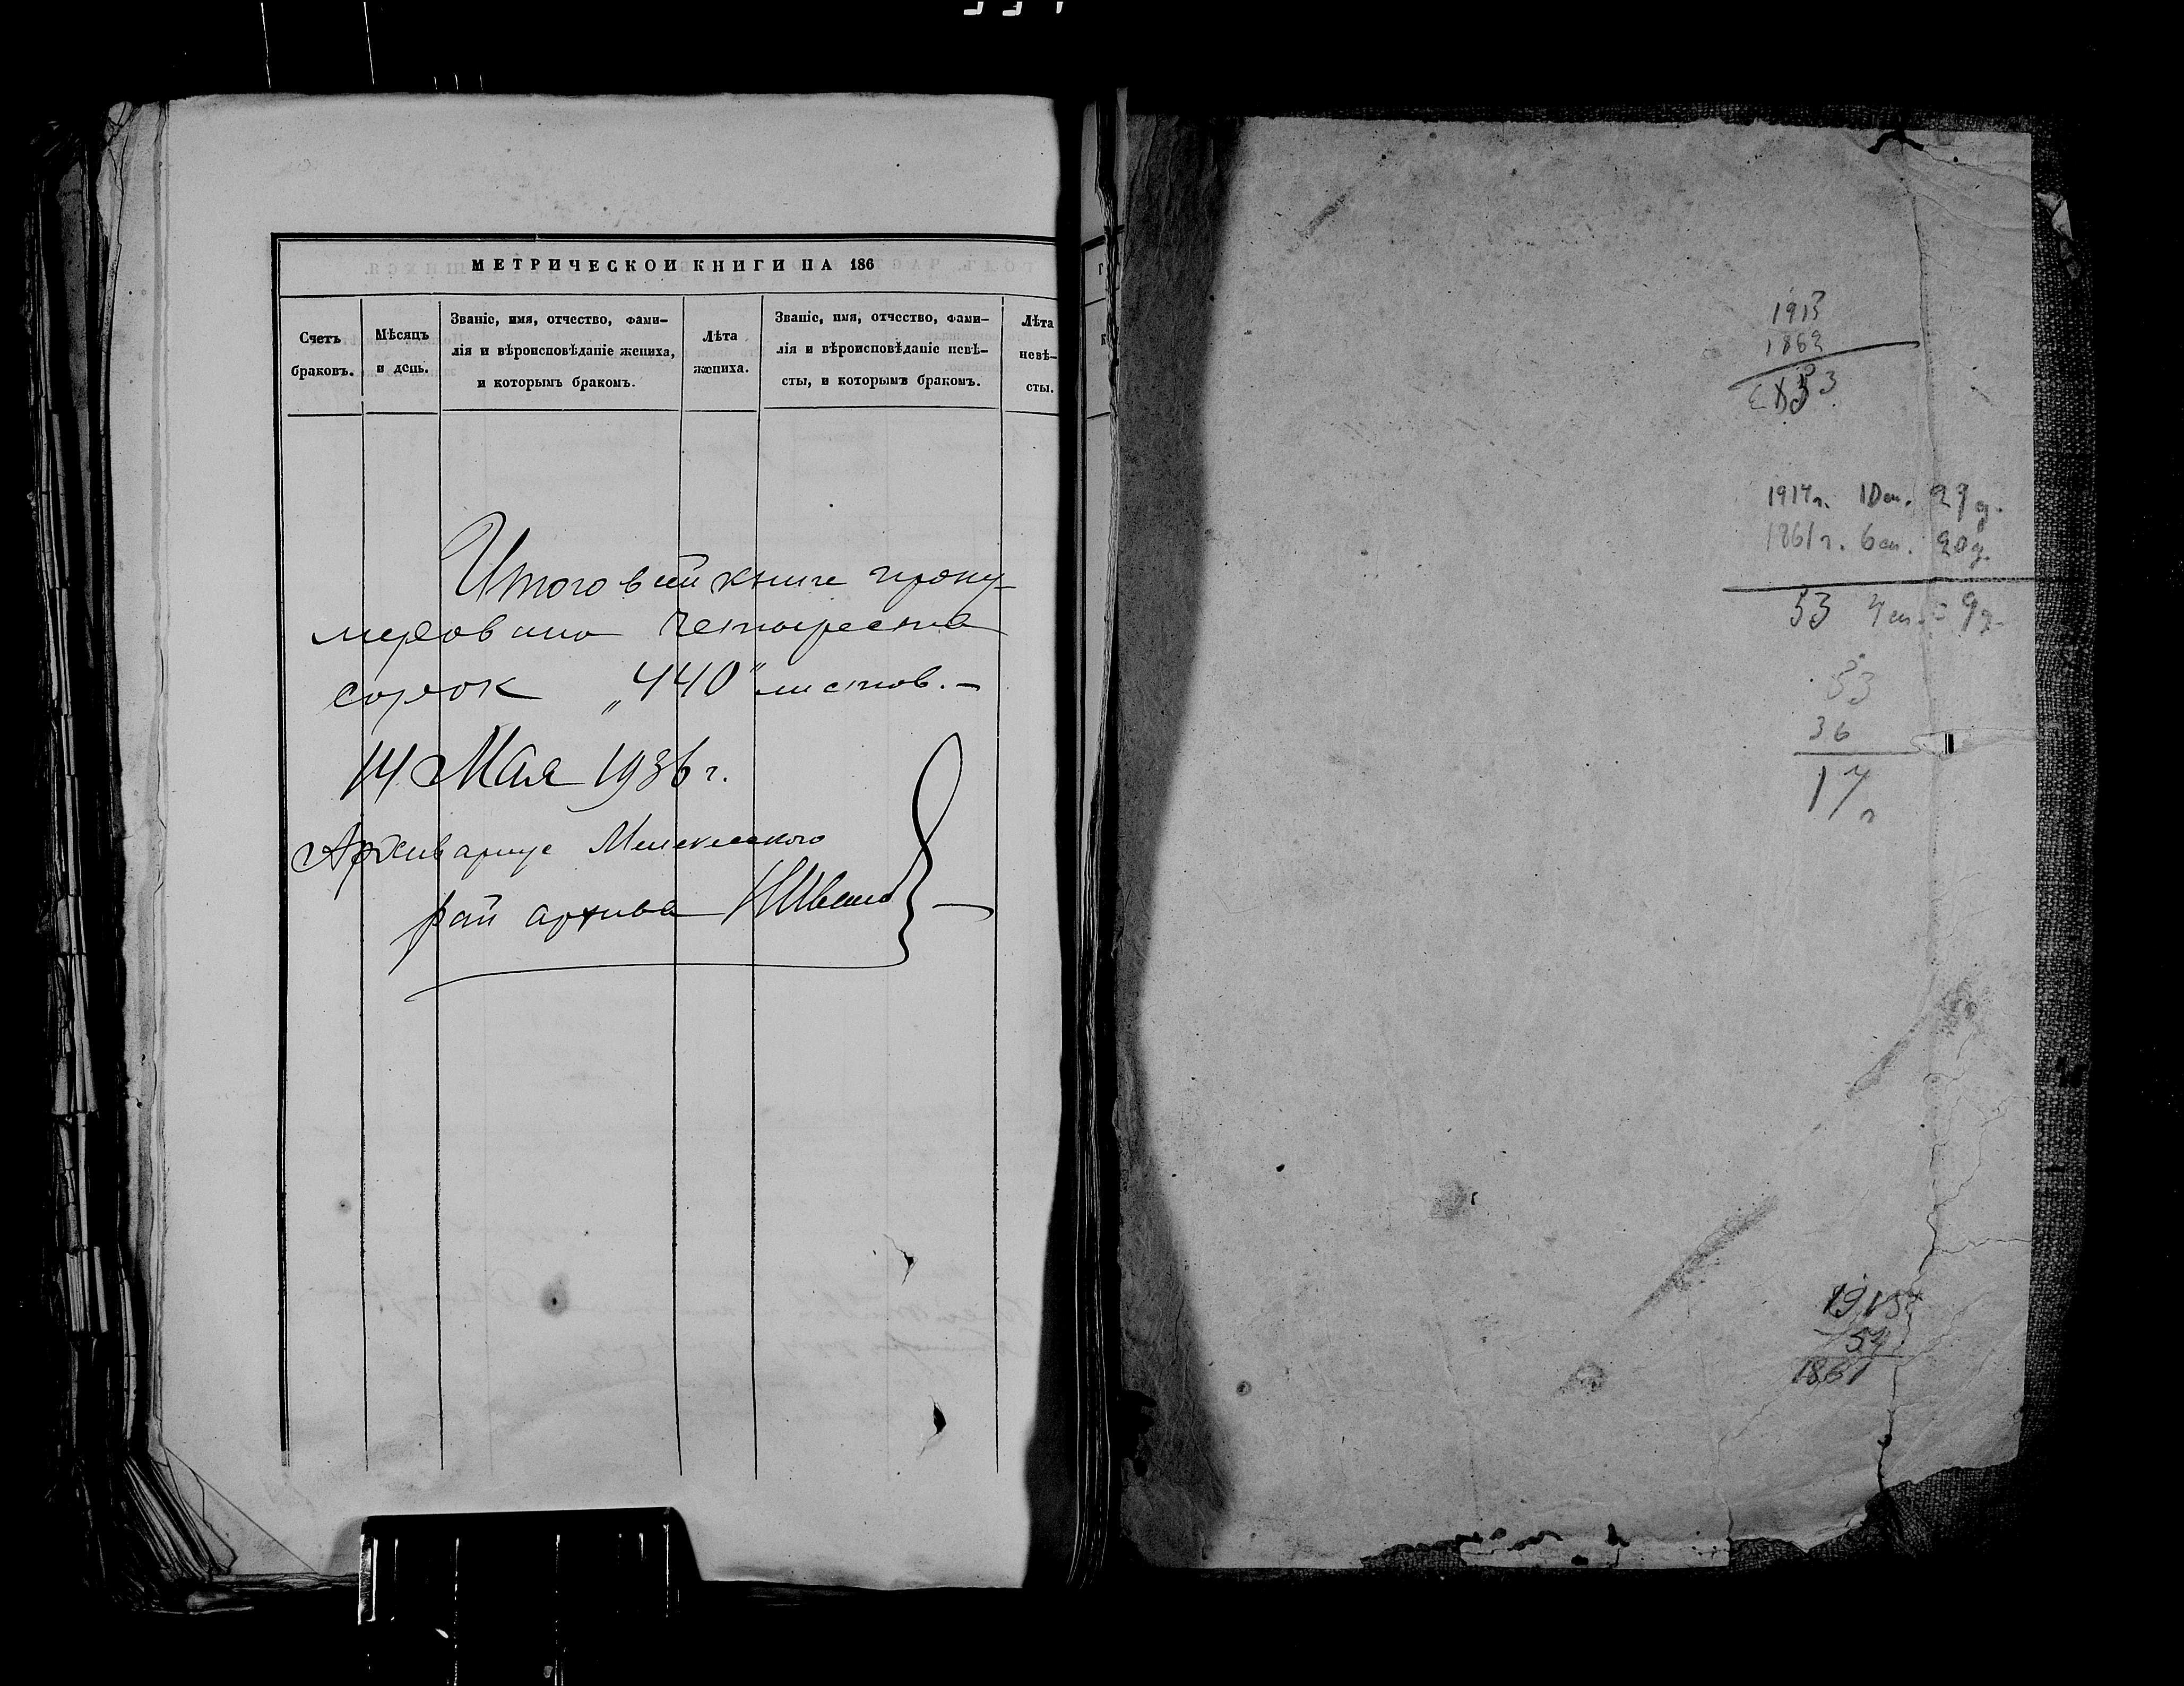 МЕТРИЧЕСКОЙ КНИГИ НА 186
Счетъ браковъ.
Мѣсяцъ и день.
Званіе, имя, отчество, фами-
лія и вѣроисповѣданіе жениха,
и которымъ бракомъ.
Лѣта жениха.
Званіе, имя, отчество, фами-
лія и вѣроисповѣданіе невѣ-
сты, и которымъ бракомъ.
Лѣта
невѣ-
сты.
Итого в сей книге прону-
меровано четыреста
сорок „440" листов. —
14 Мая 1936 г.
Архивариус Мелекесского
рай архива
1913
1862
53
1914 г. 10 м. 29 д.
1861 г. 6 м. 20 д.
53 4 м. 9 д.
53
36
17
1915
54
1861